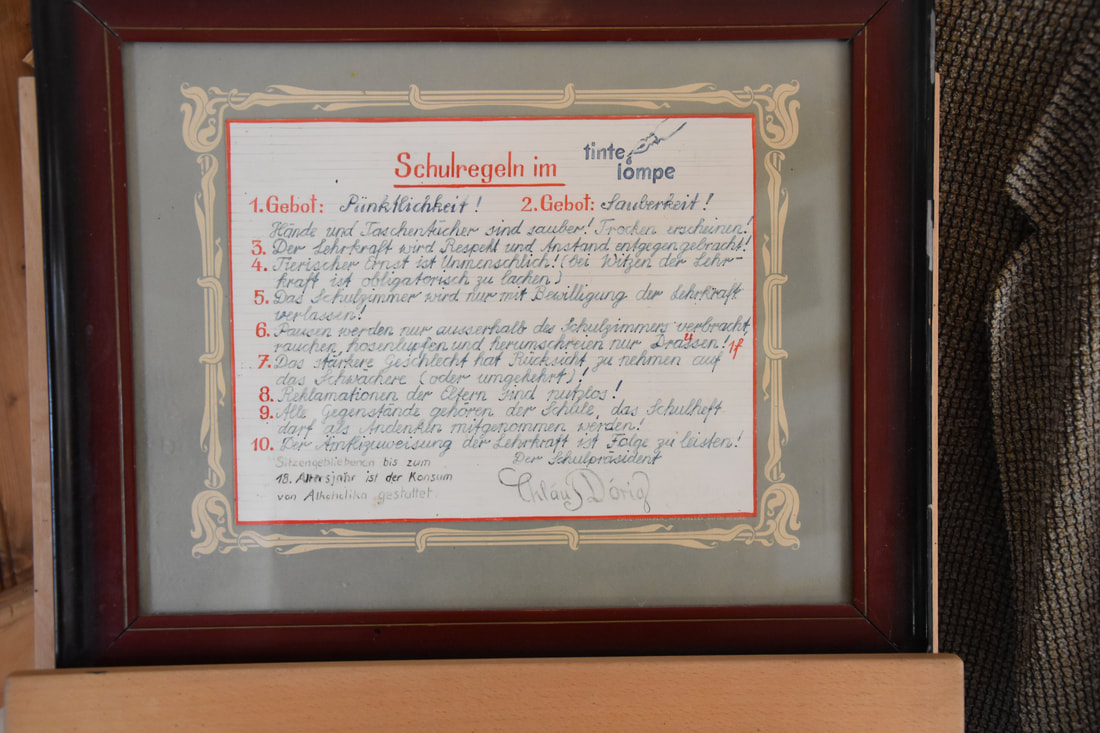 Schulregeln im tinte lompe
1. Gebot: Pünktlichkeit! 2. Gebot: Sauberkeit!
Hände und Taschentücher sind sauber! Trocken erscheinen!
3. Der Lehrkraft wird Respekt und Anstand entgegengebracht!
4. Tierischer Ernst ist Unmenschlich! (bei Witzen der Lehr-
kraft ist obligatorisch zu lachen)
5. Das Schulzimmer wird nur mit Bewilligung der Lehrkraft
verlassen!
6. Pausen werden nur ausserhalb des Schulzimmers verbracht,
rauchen, hosenlupfen und herumschreien nur Draussen! 1f
7. Das stärkere Geschlecht hat Rücksicht zu nehmen auf
das Schwächere (oder umgekehrt)!
8. Reklamationen der Eltern sind nutzlos!
9. Alle Gegenstände gehören der Schule, das Schulheft
darf als Andenken mitgenommen werden!
10. Der Ämtlizuweisung der Lehrkraft ist Folge zu leisten!
Der Schulpräsident
Sitzengebliebenen bis zum
18. Altersjahr ist der Konsum
von Alkoholika gestattet.
Chläus Dörig